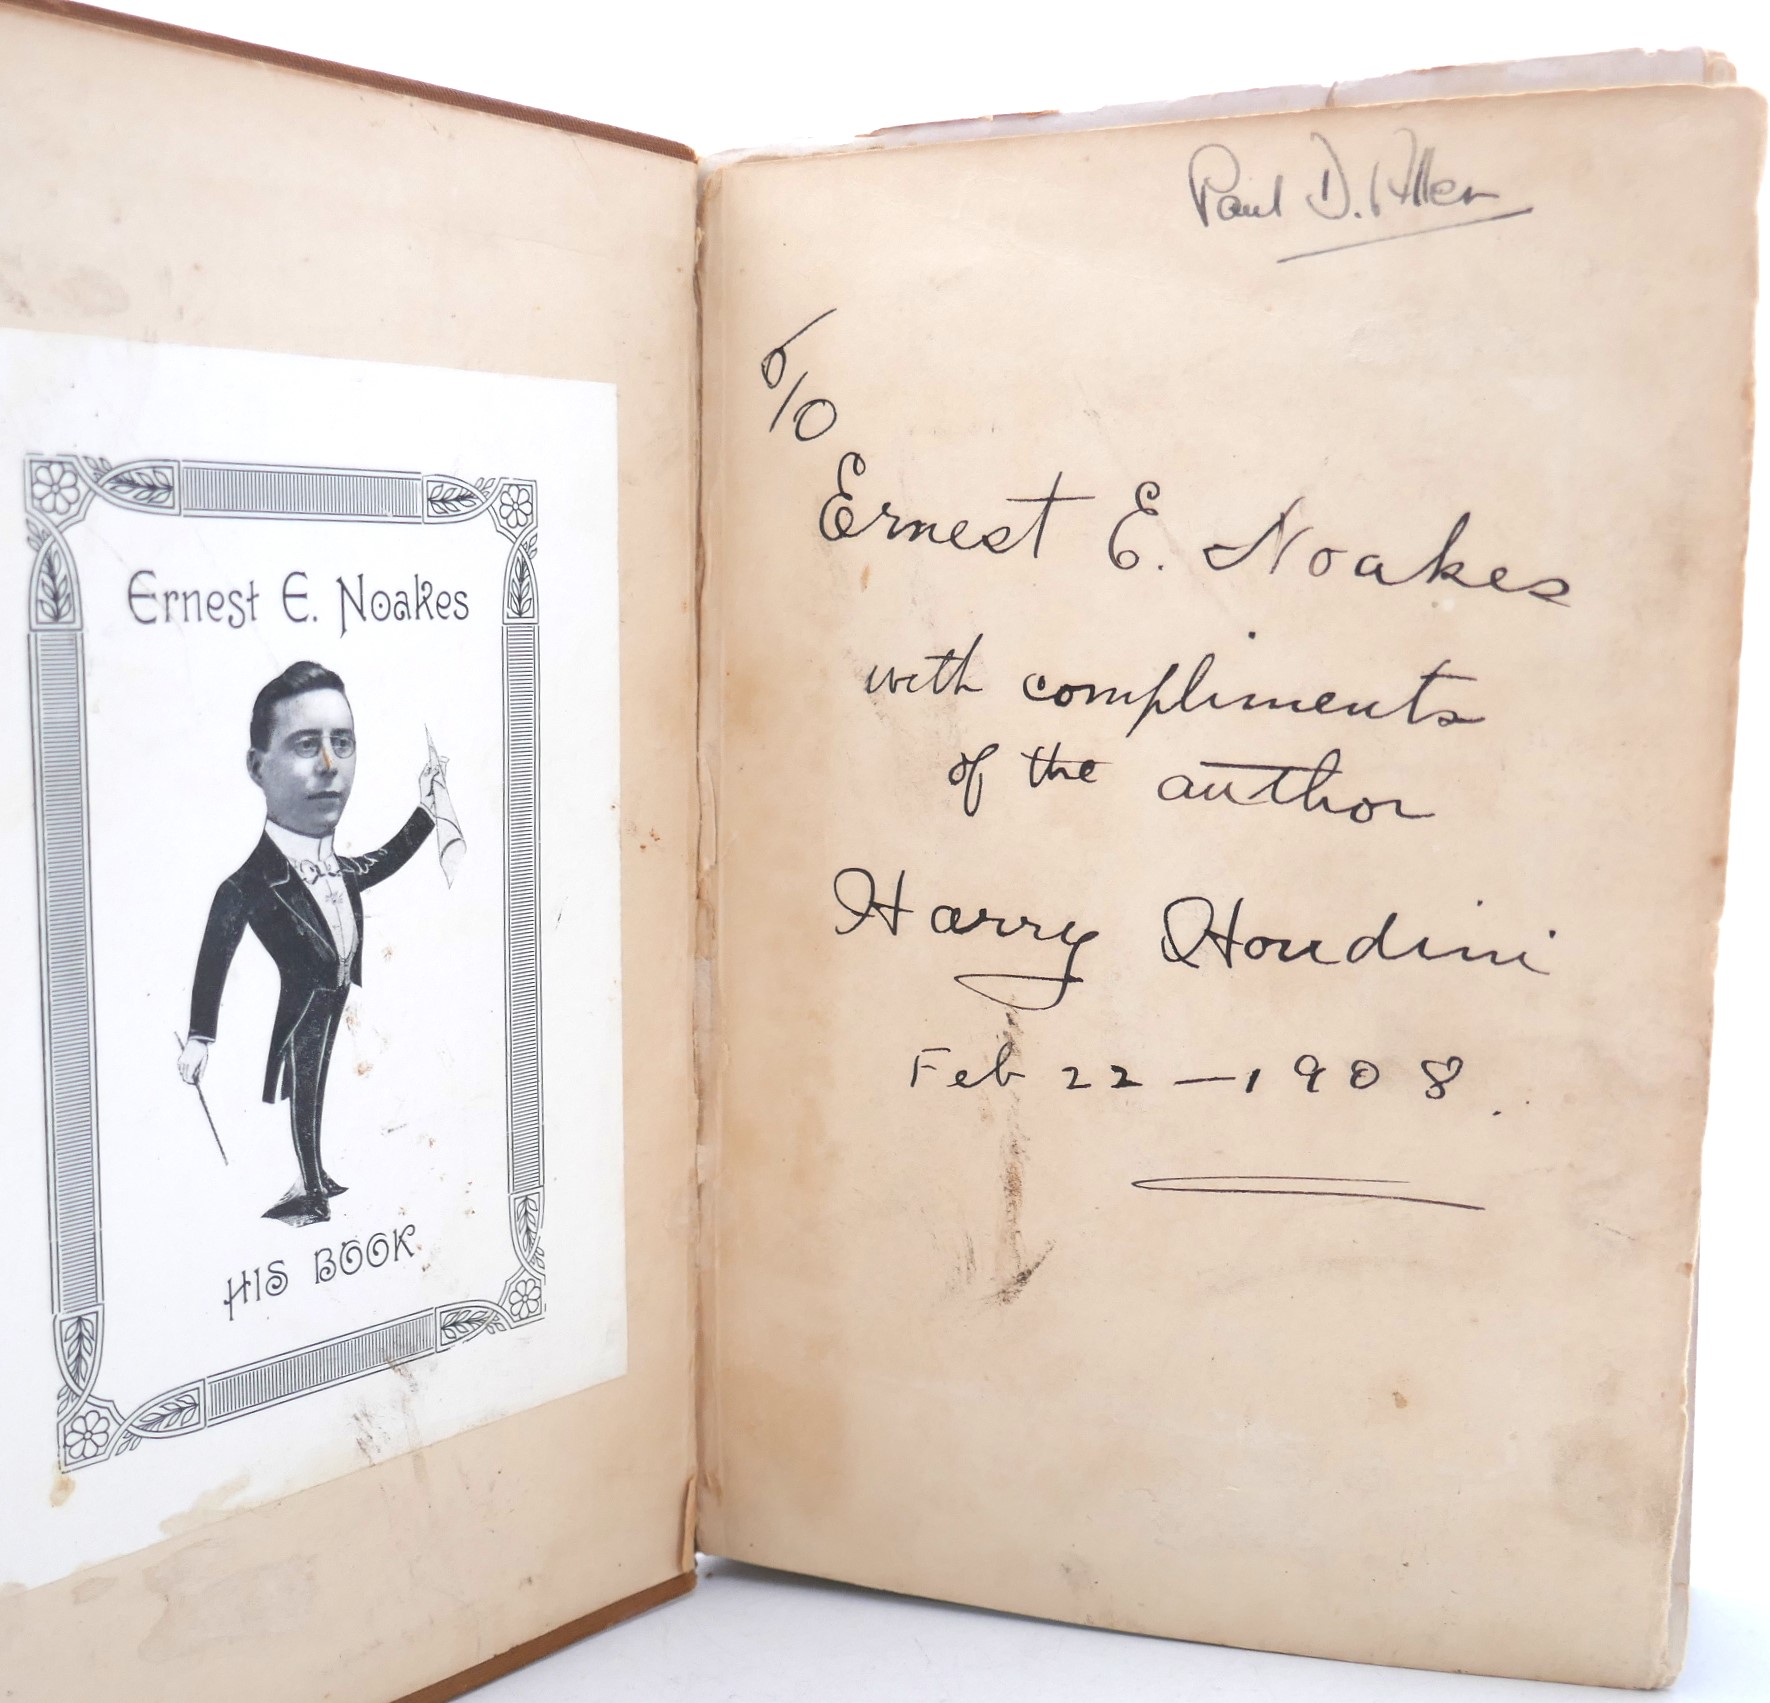 Ernest E. Noakes
HIS BOOK
Paul D. Allen
6/0
Ernest E. Noakes
with compliments
of the author
Harry Houdini
Feb 22 — 1908.